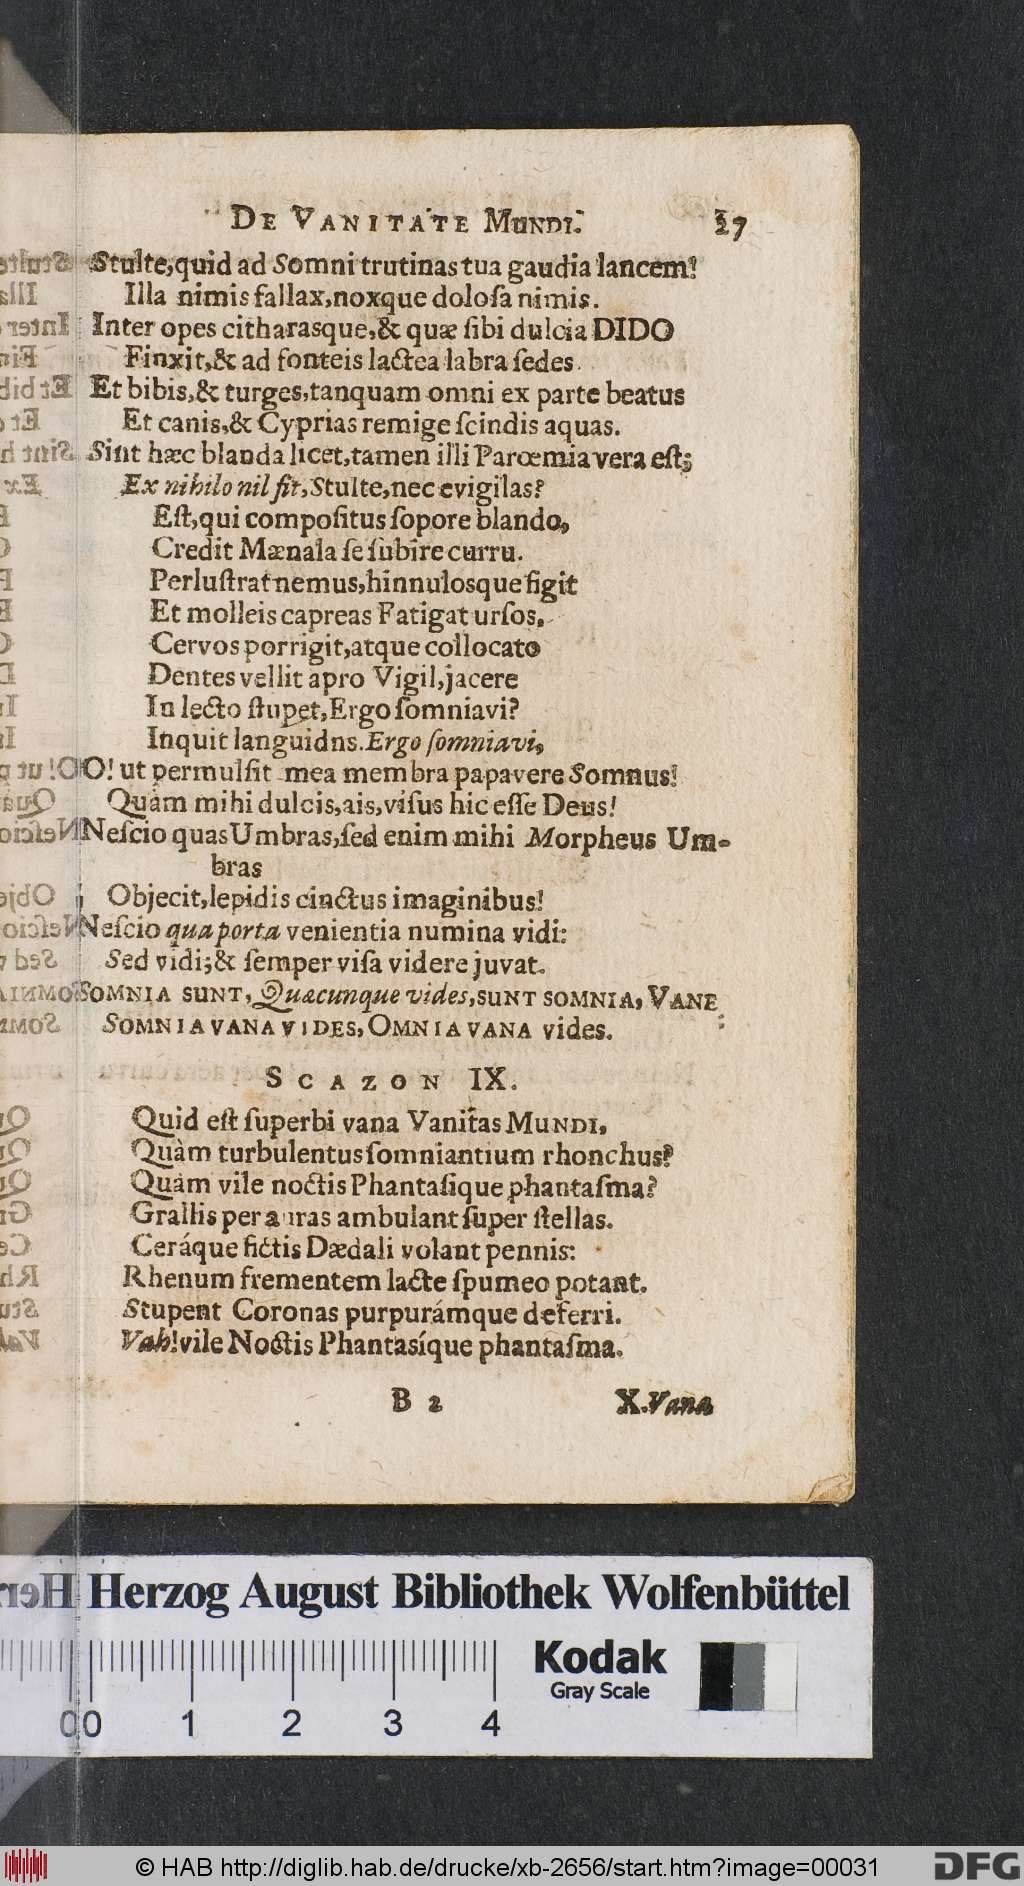 DE VANITATE MUNDI. 27
Stulte,quid ad Somni trutinas tua gaudia lancem!
Illa nimis fallax,noxque doloſa nimis.
Inter opes citharasque,& quæ ſibi dulcia DIDO
Finxit,& ad fonteis lactea labra ſedes
Et bibis,& turges,tanquam omni ex parte beatus
Et canis,& Cyprias remige ſcindis aquas.
Sint hæc blanda licet,tamen illi Parœmia vera eſt;
Ex nihilo nil fit,Stulte,nec evigilas?
Eſt,qui compoſitus ſopore blando,
Credit Mænala ſe ſubire curru.
Perluſtrat nemus,hinnulosque figit
Et molleis capreas Fatigat urſos,
Cervos porrigit,atque collocato
Dentes vellit apro Vigil,jacere
In lecto ſtupet,Ergo ſomniavi?
Inquit languidns.Ergo ſomniavi,
O! ut permulſit mea membra papavere Somnus!
Quàm mihi dulcis,ais,viſus hic eſſe Deus!
Neſcio quas Umbras,ſed enim mihi Morpheus Um-
bras
Objecit,lepidis cinctus imaginibus!
Neſcio qua porta venientia numina vidi:
Sed vidi;& ſemper viſa videre juvat.
SOMNIA SUNT, Quæcunque vides,SUNT SOMNIA, VANE
SOMNIA VANA VIDES, OMNIA VANA vides.
SCAZON IX.
Quid eſt ſuperbi vana Vanitas MUNDI,
Quàm turbulentus ſomniantium rhonchus?
Quàm vile noctis Phantaſique phantaſma?
Grallis per auras ambulant ſuper ſtellas.
Ceráque fictis Dædali volant pennis:
Rhenum frementem lacte ſpumeo potant.
Stupent Coronas purpurámque deferri.
Vah!vile Noctis Phantasíque phantaſma.
B 2 X.Vana
Herzog August Bibliothek Wolfenbüttel
Kodak
Gray Scale
0 1 2 3 4
© HAB http://diglib.hab.de/drucke/xb-2656/start.htm?image=00031
DFG